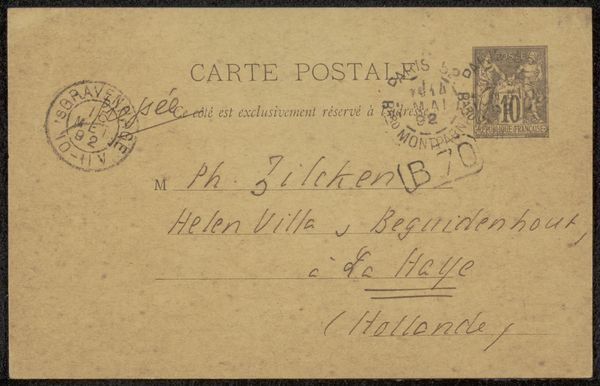 CARTE POSTALE
Ce côté est exclusivement réservé à l'adresse
RÉPUBLIQUE FRANÇAISE
10
PARIS
MAI
92
MONTPARN
'SGRAVENHAGE
MEI
92
B 70
M Ph. Zilcken
Helen Villa, Beguidenhout,
à La Haye
(Hollande)